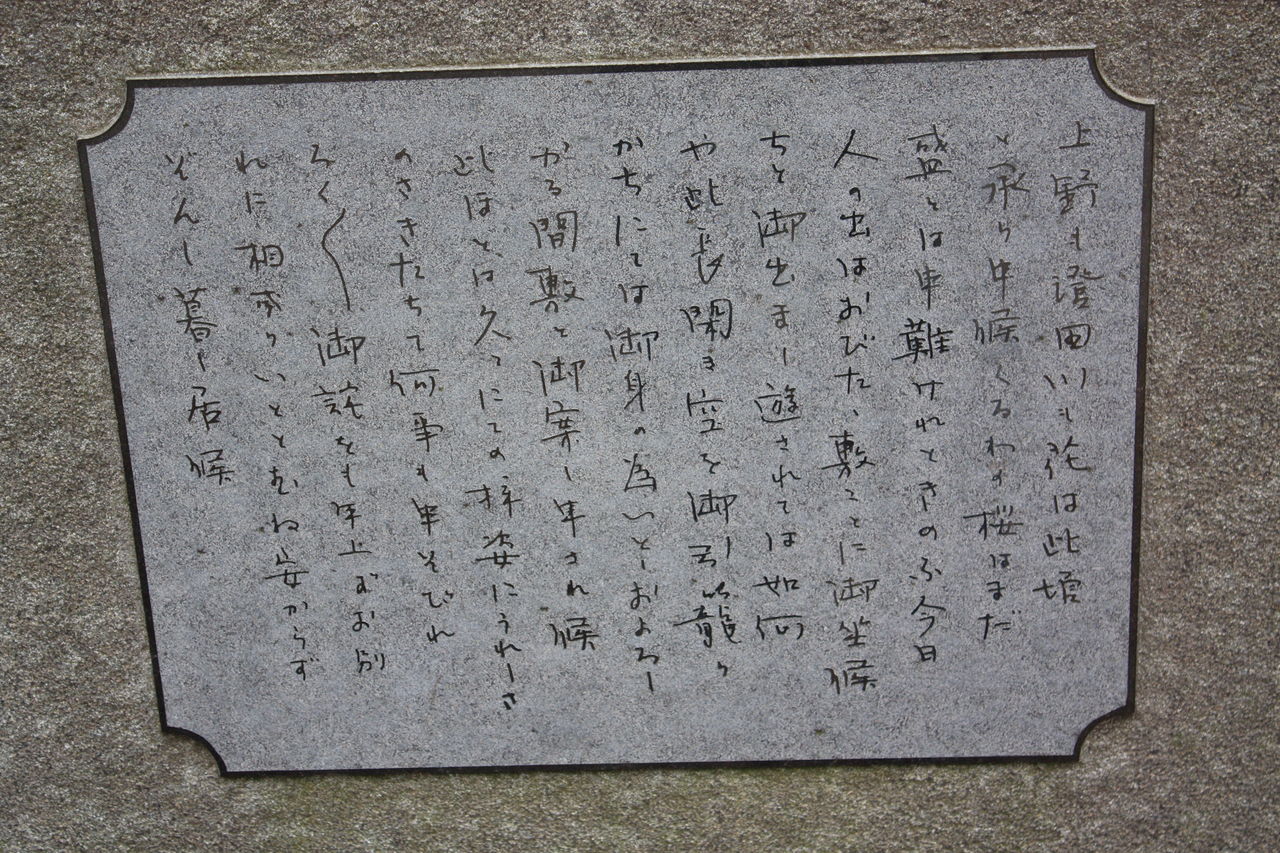 上野も澄田川も花は此増
と承り申候くるわの桜はまだ
盛とは申難けれときのふ今日
人の出はおびたゝ敷ことに御坐候
ちと御出まし遊されては如何
や此長閑き空を御引籠り
かちにては御身の為いとしおよろし
かる間敷と御案し申され候
此ほとは久々にての拝姿にうれしさ
のさきたちて何事も申そびれ
ろく〳〵御詫をも申上ずお別
れに相成りいとと思ね安からず
ぞんし暮し居候